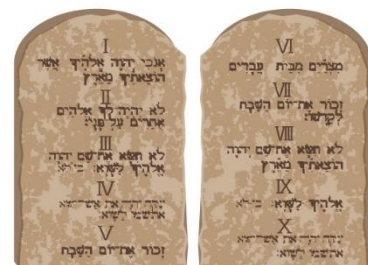 I
אנכי יהוה אלהיך אשר
הוצאתיך מארץ
II
לא יהיה לך אלהים
אחרים על פני:
III
לא תשא את שם יהוה
אלהיך לשוא: כי לא
IV
יהוה את אשר
לשוא:
V
זכור את־יום השבת
VI
מצרים מבית עבדים
VII
זכור את־יום השבת
לקדשו:
VIII
לא תשא את שם יהוה
הוצאתיך מארץ
IX
אלהיך לשוא: כי לא
X
יהוה את אשר
לשוא: